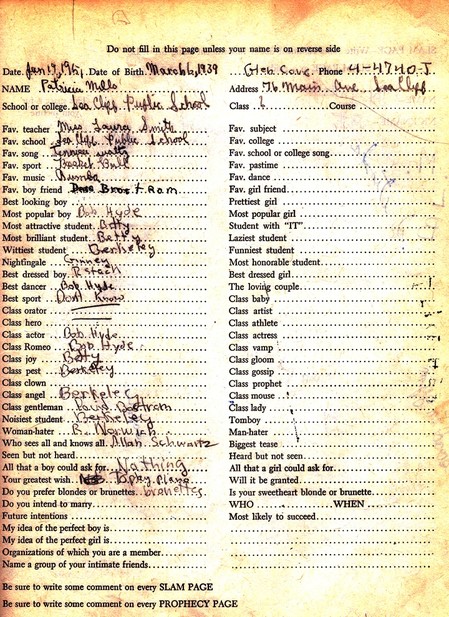 Do not fill in this page unless your name is on reverse side
Date. Jan 19, 195 , Date of Birth. March 12, 1939 ....Glen Cove. Phone 4-4740-J
NAME Patricia Mills Address 76. Main Ave. Sea Cliff
School or college. Sea Cliff Public School Class 6 Course
Fav. teacher Miss Laura Smith Fav. subject
Fav. school Sea Cliff Public School Fav. college
Fav. song Tennessee waltz Fav. school or college song
Fav. sport Basket Ball Fav. pastime
Fav. music Rumba Fav. dance
Fav. boy friend Bros + Ram Fav. girl friend
Best looking boy Prettiest girl
Most popular boy Bob Hyde Most popular girl
Most attractive student Betty Student with "IT"
Most brilliant student Betty Laziest student
Wittiest student Berkeley Funniest student
Nightingale Ginney Most honorable student
Best dressed boy R Stach Best dressed girl
Best dancer Bob Hyde The loving couple
Best sport Dont Know Class baby
Class orator Class artist
Class hero Class athlete
Class actor Bob Hyde Class actress
Class Romeo Bob Hyde Class vamp
Class joy Betty Class gloom
Class pest Berkeley Class gossip
Class clown Class prophet
Class angel Berkeley Class mouse
Class gentleman Bostrom Class lady
Noisiest student Berkeley Tomboy
Woman-hater R. Norwich Man-hater
Who sees all and knows all. Allan Schwartz Biggest tease
Seen but not heard Heard but not seen
All that a boy could ask for. Nothing All that a girl could ask for
Your greatest wish. To play piano Will it be granted
Do you prefer blondes or brunettes. brunettes. Is your sweetheart blonde or brunette
Do you intend to marry WHO WHEN
Future intentions Most likely to succeed
My idea of the perfect boy is
My idea of the perfect girl is
Organizations of which you are a member
Name a group of your intimate friends
Be sure to write some comment on every SLAM PAGE
Be sure to write some comment on every PROPHECY PAGE